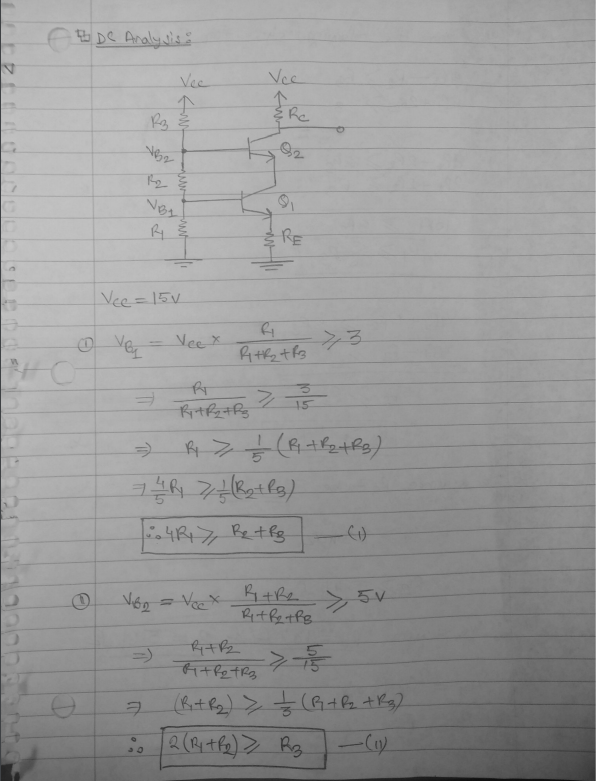 DC Analysis:
Vcc Vcc
R3 Rc
VB2 Q2
R2
VB1 Q1
R1 RE
Vcc = 15V
① VB1 = Vcc × R1/(R1+R2+R3) ⩾ 3
⇒ R1/(R1+R2+R3) ⩾ 3/15
⇒ R1 ⩾ 1/5 (R1+R2+R3)
⇒ 4/5 R1 ⩾ 1/5 (R2+R3)
∴ 4R1 ⩾ R2+R3 —(i)
⑪ VB2 = Vcc × (R1+R2)/(R1+R2+R3) ⩾ 5V
⇒ (R1+R2)/(R1+R2+R3) ⩾ 5/15
⇒ (R1+R2) ⩾ 1/3 (R1+R2+R3)
∴ 2(R1+R2) ⩾ R3 —(ii)